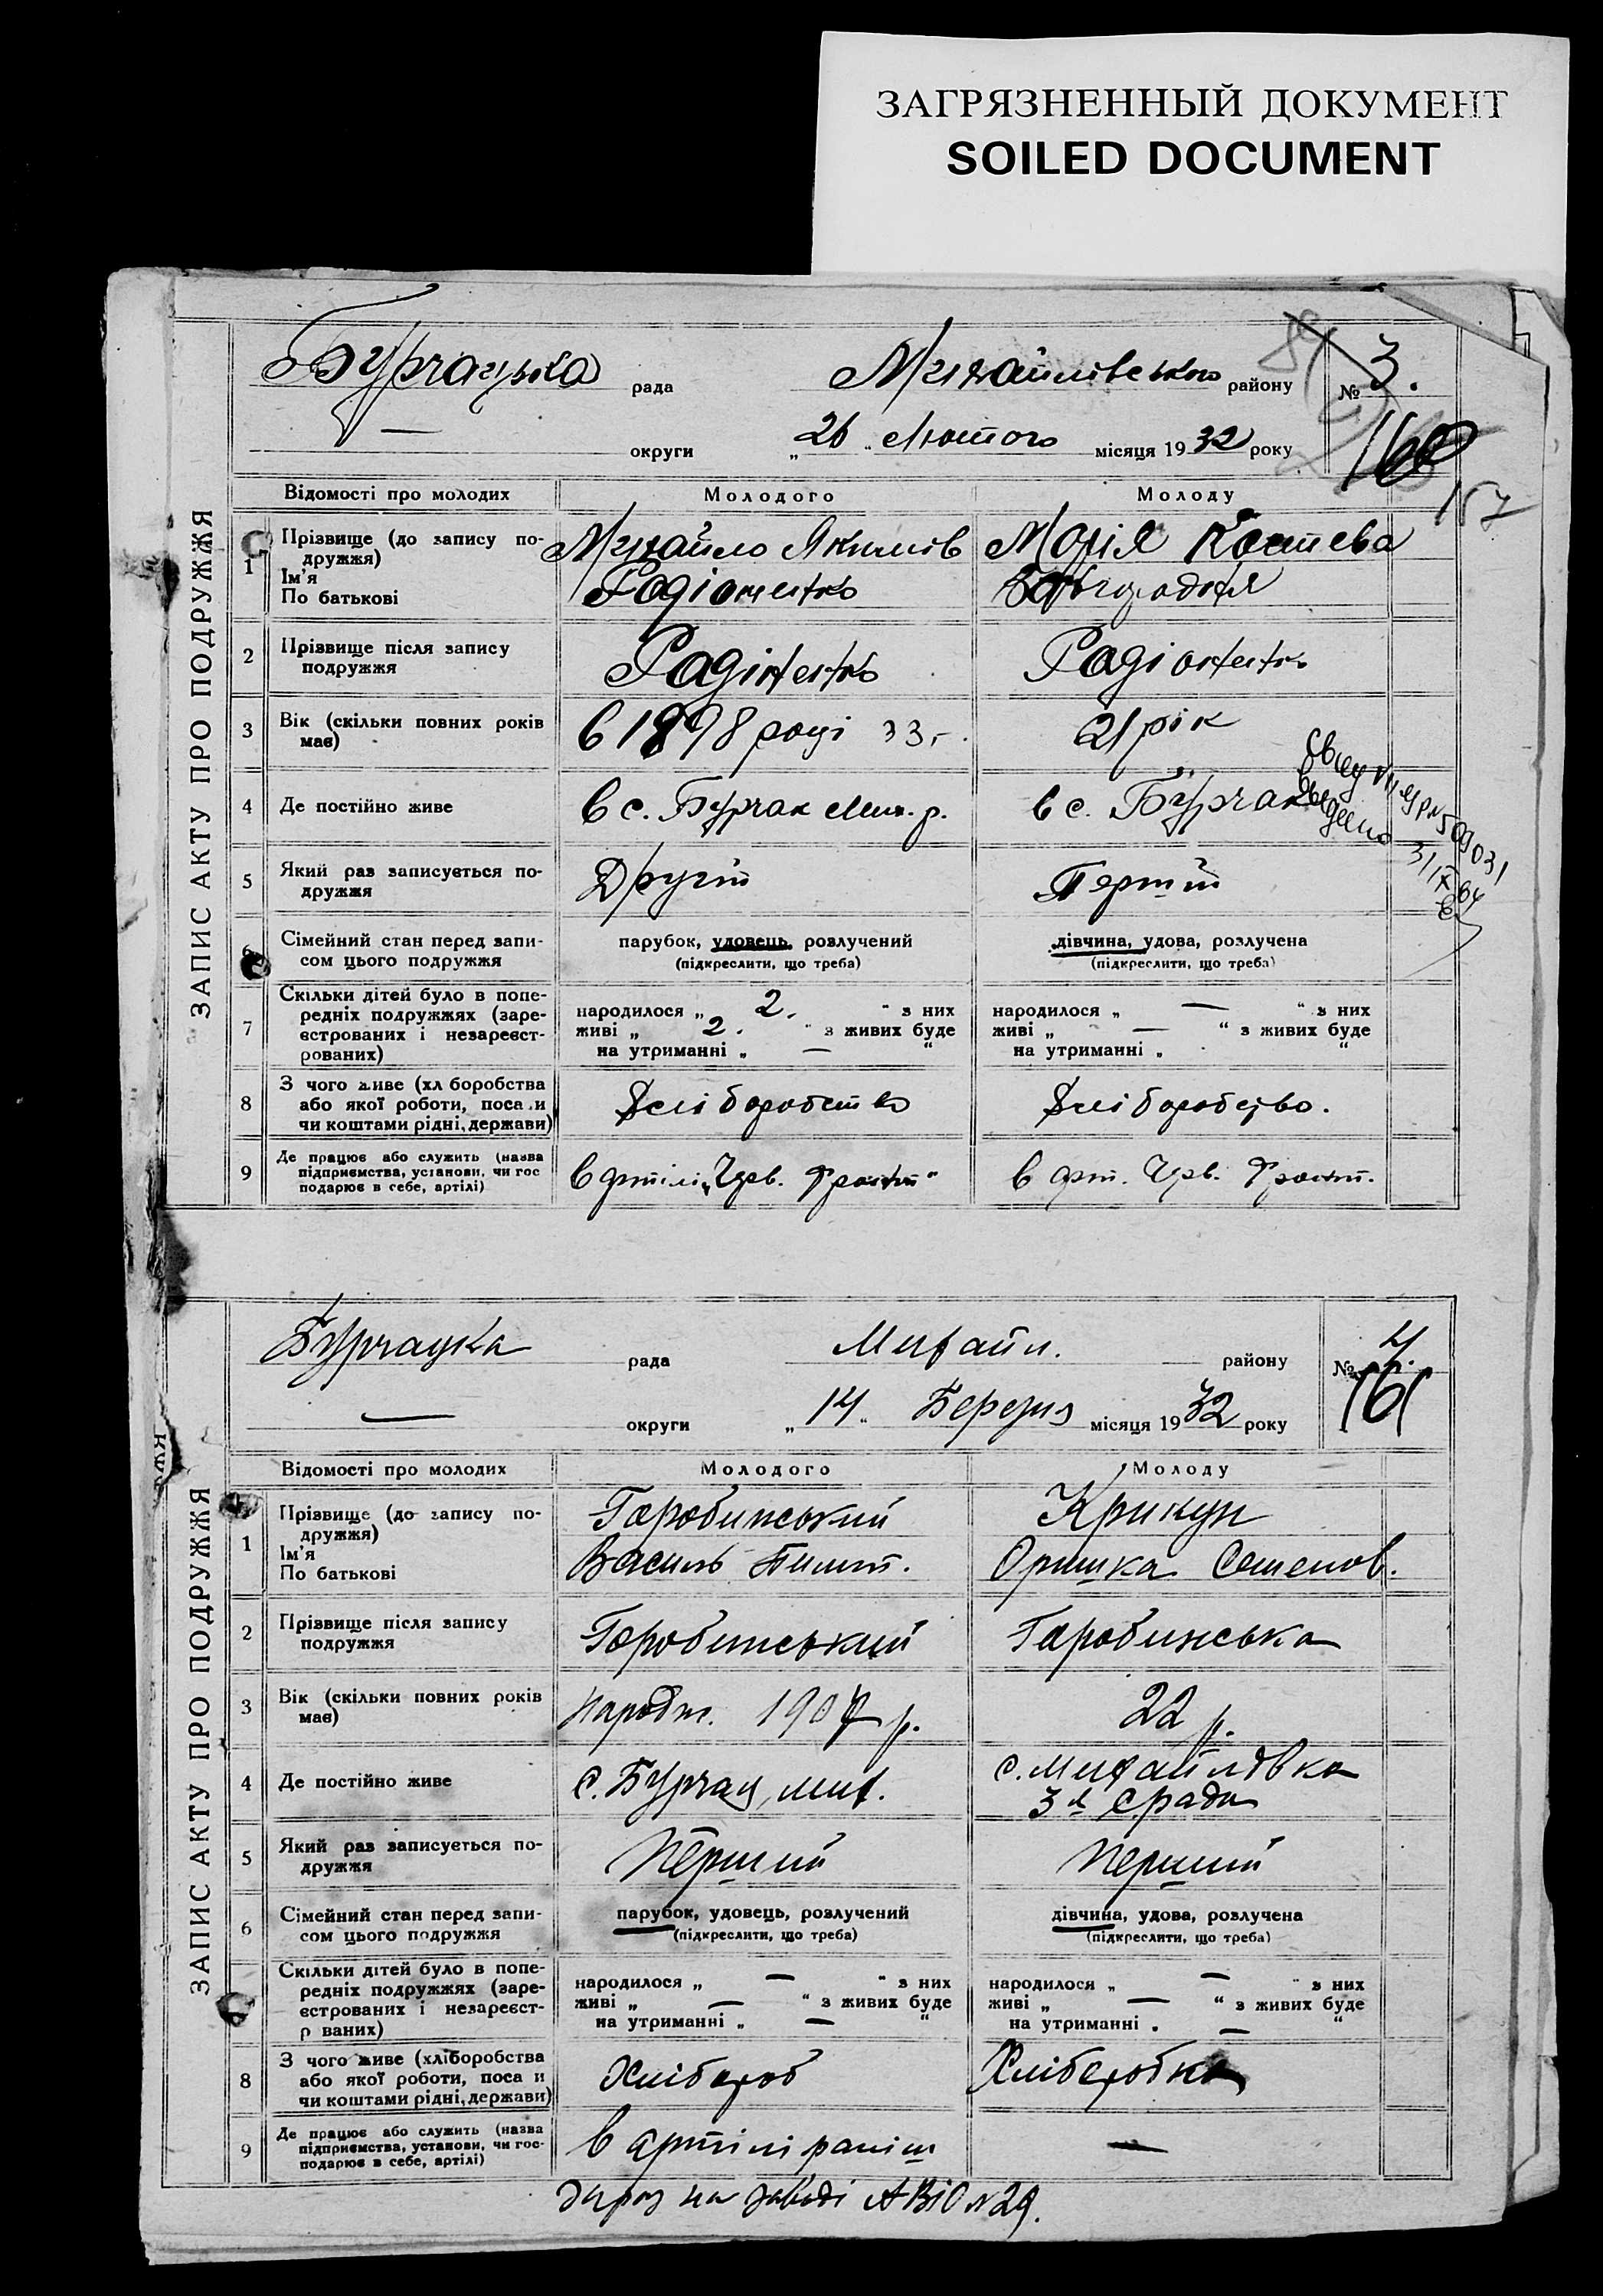 ЗАГРЯЗНЕННЫЙ ДОКУМЕНТ
SOILED DOCUMENT
ЗАПИС АКТУ ПРО ПОДРУЖЖЯ
Бурчацька рада Михайлівського району № 3.
— округи „26“ Лютого місяця 1932 року
160
157
Відомості про молодих Молодого Молоду
1 Прізвище (до запису по-
дружжя)
Ім'я
По батькові
Михайло Якимів
Радіоненко
Марія Костева
2 Прізвище після запису
подружжя
Радіненко
Радіоненко
3 Вік (скільки повних років
має)
в 1898 році 33 р.
21 рік
4 Де постійно живе в с. Бурчак Мих. р. в с. Бурчак
5 Який раз записується по-
дружжя
Другій
Першій
6 Сімейний стан перед запи-
сом цього подружжя
парубок, удовець, розлучений
(підкреслити, що треба)
дівчина, удова, розлучена
(підкреслити, що треба)
7 Скільки дітей було в попе-
редніх подружжях (заре-
єстрованих і незареєст-
рованих)
народилося „ 2. “ з них
живі „ 2. “ з живих буде
на утриманні „ — “
народилося „ — “ з них
живі „ — “ з живих буде
на утриманні „ “
8 З чого живе (хл боробства
або якої роботи, поса и
чи коштами рідні, держави)
Хліборобство
Хліборобство.
9 Де працює або служить (назва
підприємства, установи, чи гос
подарює в себе, артілі)
в артілі „Черв. Фронт“
в арт. Черв. Фронт.
ЗАПИС АКТУ ПРО ПОДРУЖЖЯ
Бурчацка рада Михайл. району № 4.
— округи „14“ Березня місяця 1932 року
161
Відомості про молодих Молодого Молоду
1 Прізвище (до запису по-
дружжя)
Ім'я
По батькові
Горобинський
Василь Пилип.
Крикун
Оришка Семенов.
2 Прізвище після запису
подружжя
Горобинський
Горобинська
3 Вік (скільки повних років
має)
народж. 1907 р.
22 р.
4 Де постійно живе с. Бурчац, мих. с. Михайлівка
3 а с рада
5 Який раз записується по-
дружжя
Перший
Перший
6 Сімейний стан перед запи-
сом цього подружжя
парубок, удовець, розлучений
(підкреслити, що треба)
дівчина, удова, розлучена
(підкреслити, що треба)
Скільки дітей було в попе-
редніх подружжях (заре-
єстрованих і незареєст-
р ваних)
народилося „ — “ з них
живі „ — “ з живих буде
на утриманні „ — “
народилося „ — “ з них
живі „ — “ з живих буде
на утриманні . — “
8 З чого живе (хліборобства
або якої роботи, поса и
чи коштами рідні, держави)
Хлібороб
Хліборобка
9 Де працює або служить (назва
підприємства, установи, чи гос-
подарює в себе, артілі)
в артілі раніш
—
зараз на заводі АВІО № 29.